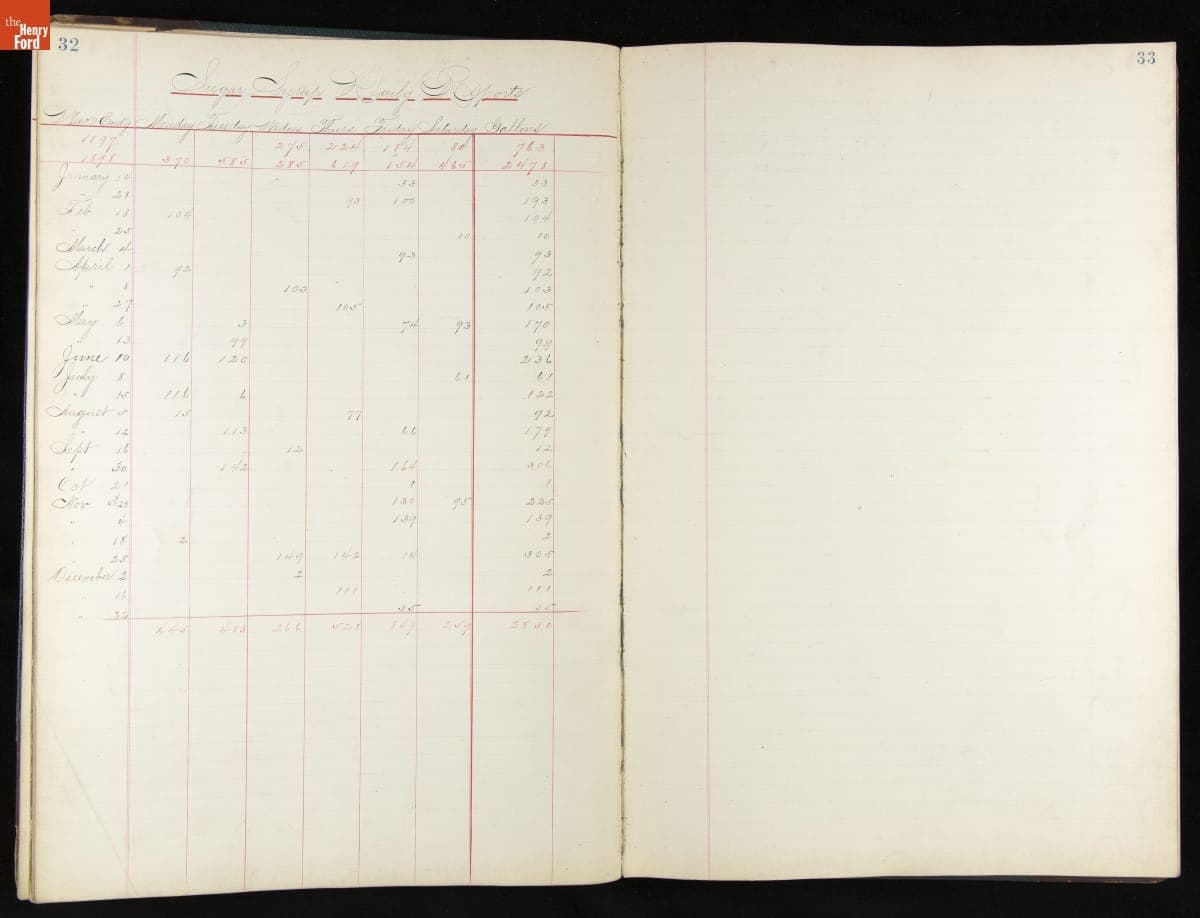 the Henry Ford
32
33
Sugar Syrup Daily Reports
Monday Tuesday Wednes Thurs Friday Saturday Gallons
1897 275 224 184 80 763
1898 370 585 285 619 154 465 2478
January 14 33 33
" 28 93 100 193
Feb 18 104 104
" 25 10 10
March 4 93 93
April 1 92 92
" 8 103 103
" 27 105 105
May 6 3 74 93 170
" 13 99 99
June 10 116 120 236
July 8 61 61
" 15 116 6 122
August 5 15 77 92
" 12 113 66 179
Sept 16 12 12
" 30 142 164 306
Oct 21 1 1
Nov 28 130 95 225
" 4 139 139
" 18 2 2
" 25 149 142 14 305
December 2 2 2
" 16 111 111
" 22 35 35
445 483 266 528 849 259 2830